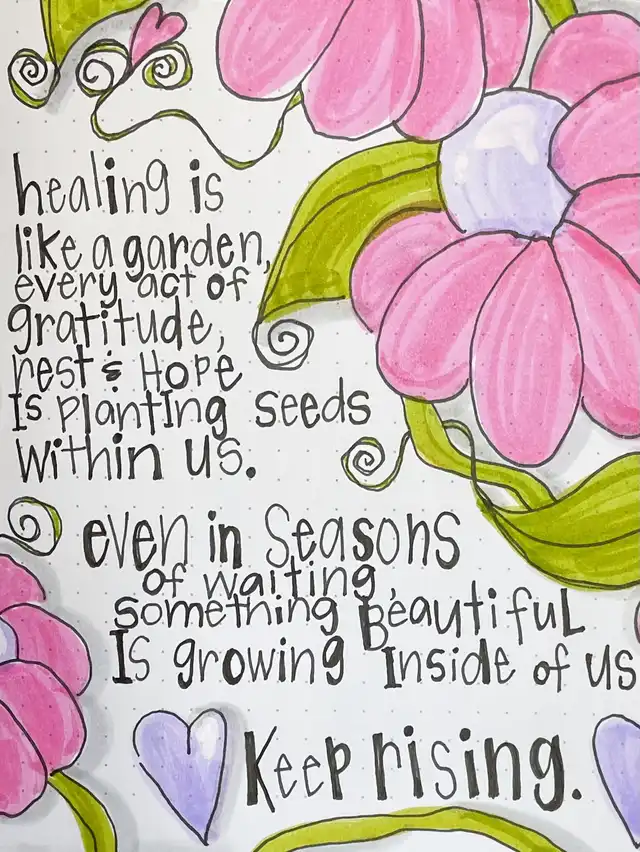 healing is
like a garden,
every act of
gratitude,
rest & HoPE
Is planting seeds
within us.
even in Seasons
of waiting
something Beautiful
Is growing Inside of us
Keep rising.